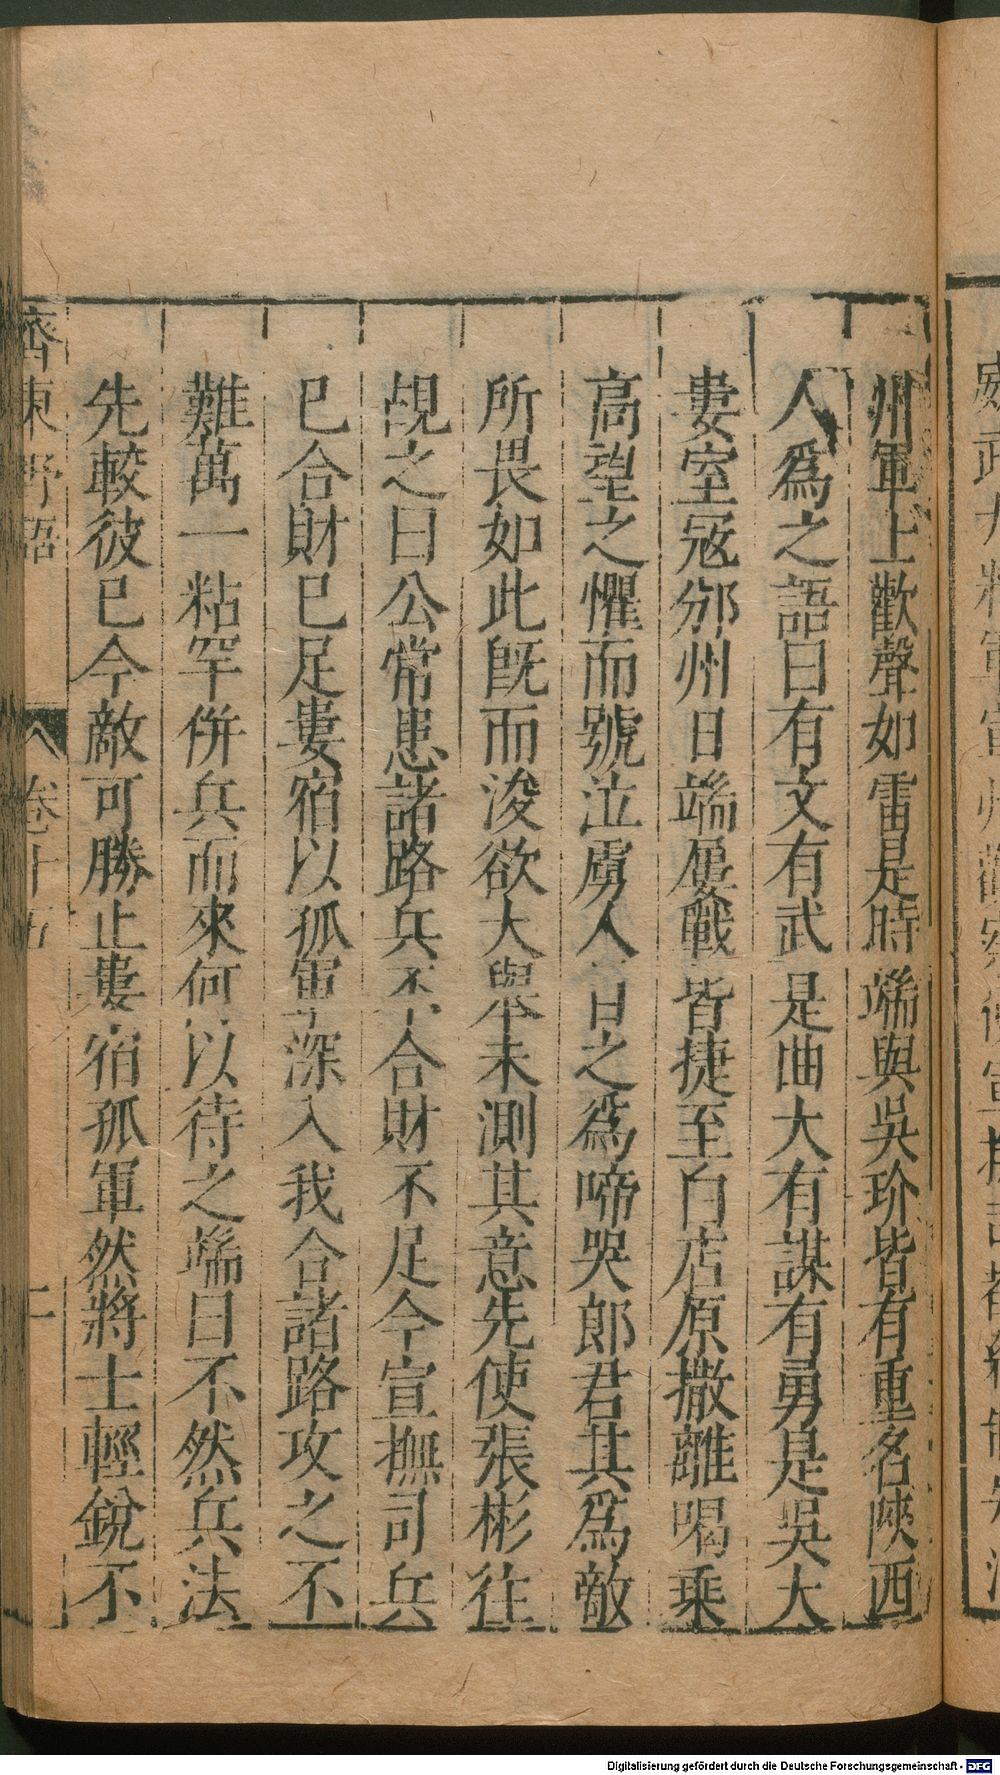 州軍上歡聲如雷是時端與吳玠皆有重名陝西
人爲之語曰有文有武是曲大有謀有勇是吳大
婁室寇邠州日端屢戰皆捷至白店原撒離喝乘
高望之懼而號泣虜人目之爲啼哭郎君其爲敵
所畏如此旣而浚欲大舉未測其意先使張彬往
覘之曰公常患諸路兵不合財不足今宣撫司兵
已合財已足婁宿以孤軍深入我合諸路攻之不
難萬一粘罕倂兵而來何以待之端曰不然兵法
先較彼已今敵可勝止婁宿孤軍然將士輕銳不
齊東野語 卷十五 二
Digitalisierung gefördert durch die Deutsche Forschungsgemeinschaft - DFG